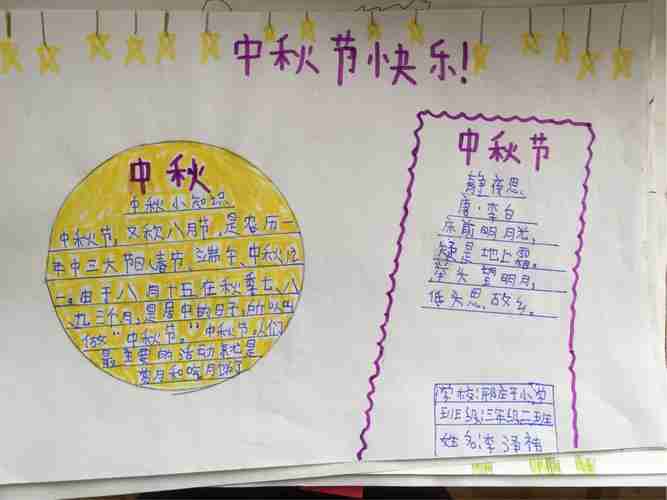 中秋节快乐!
中秋
中秋小知识
中秋节,又秋八月节,是农历一
年中三大阳,春节、端午、中秋之
一。由于八月十五在秋季七、八
九三个月,是居中的日子,所以叫
做“中秋节。”中秋节,人们
最主要的活动就是
赏月和吃月饼了
中秋节
静夜思
唐·李白
床前明月光,
疑是地上霜。
举头望明月,
低头思故乡。
学校:邢庄子小学
班级:三年级二班
姓名:李泽祎